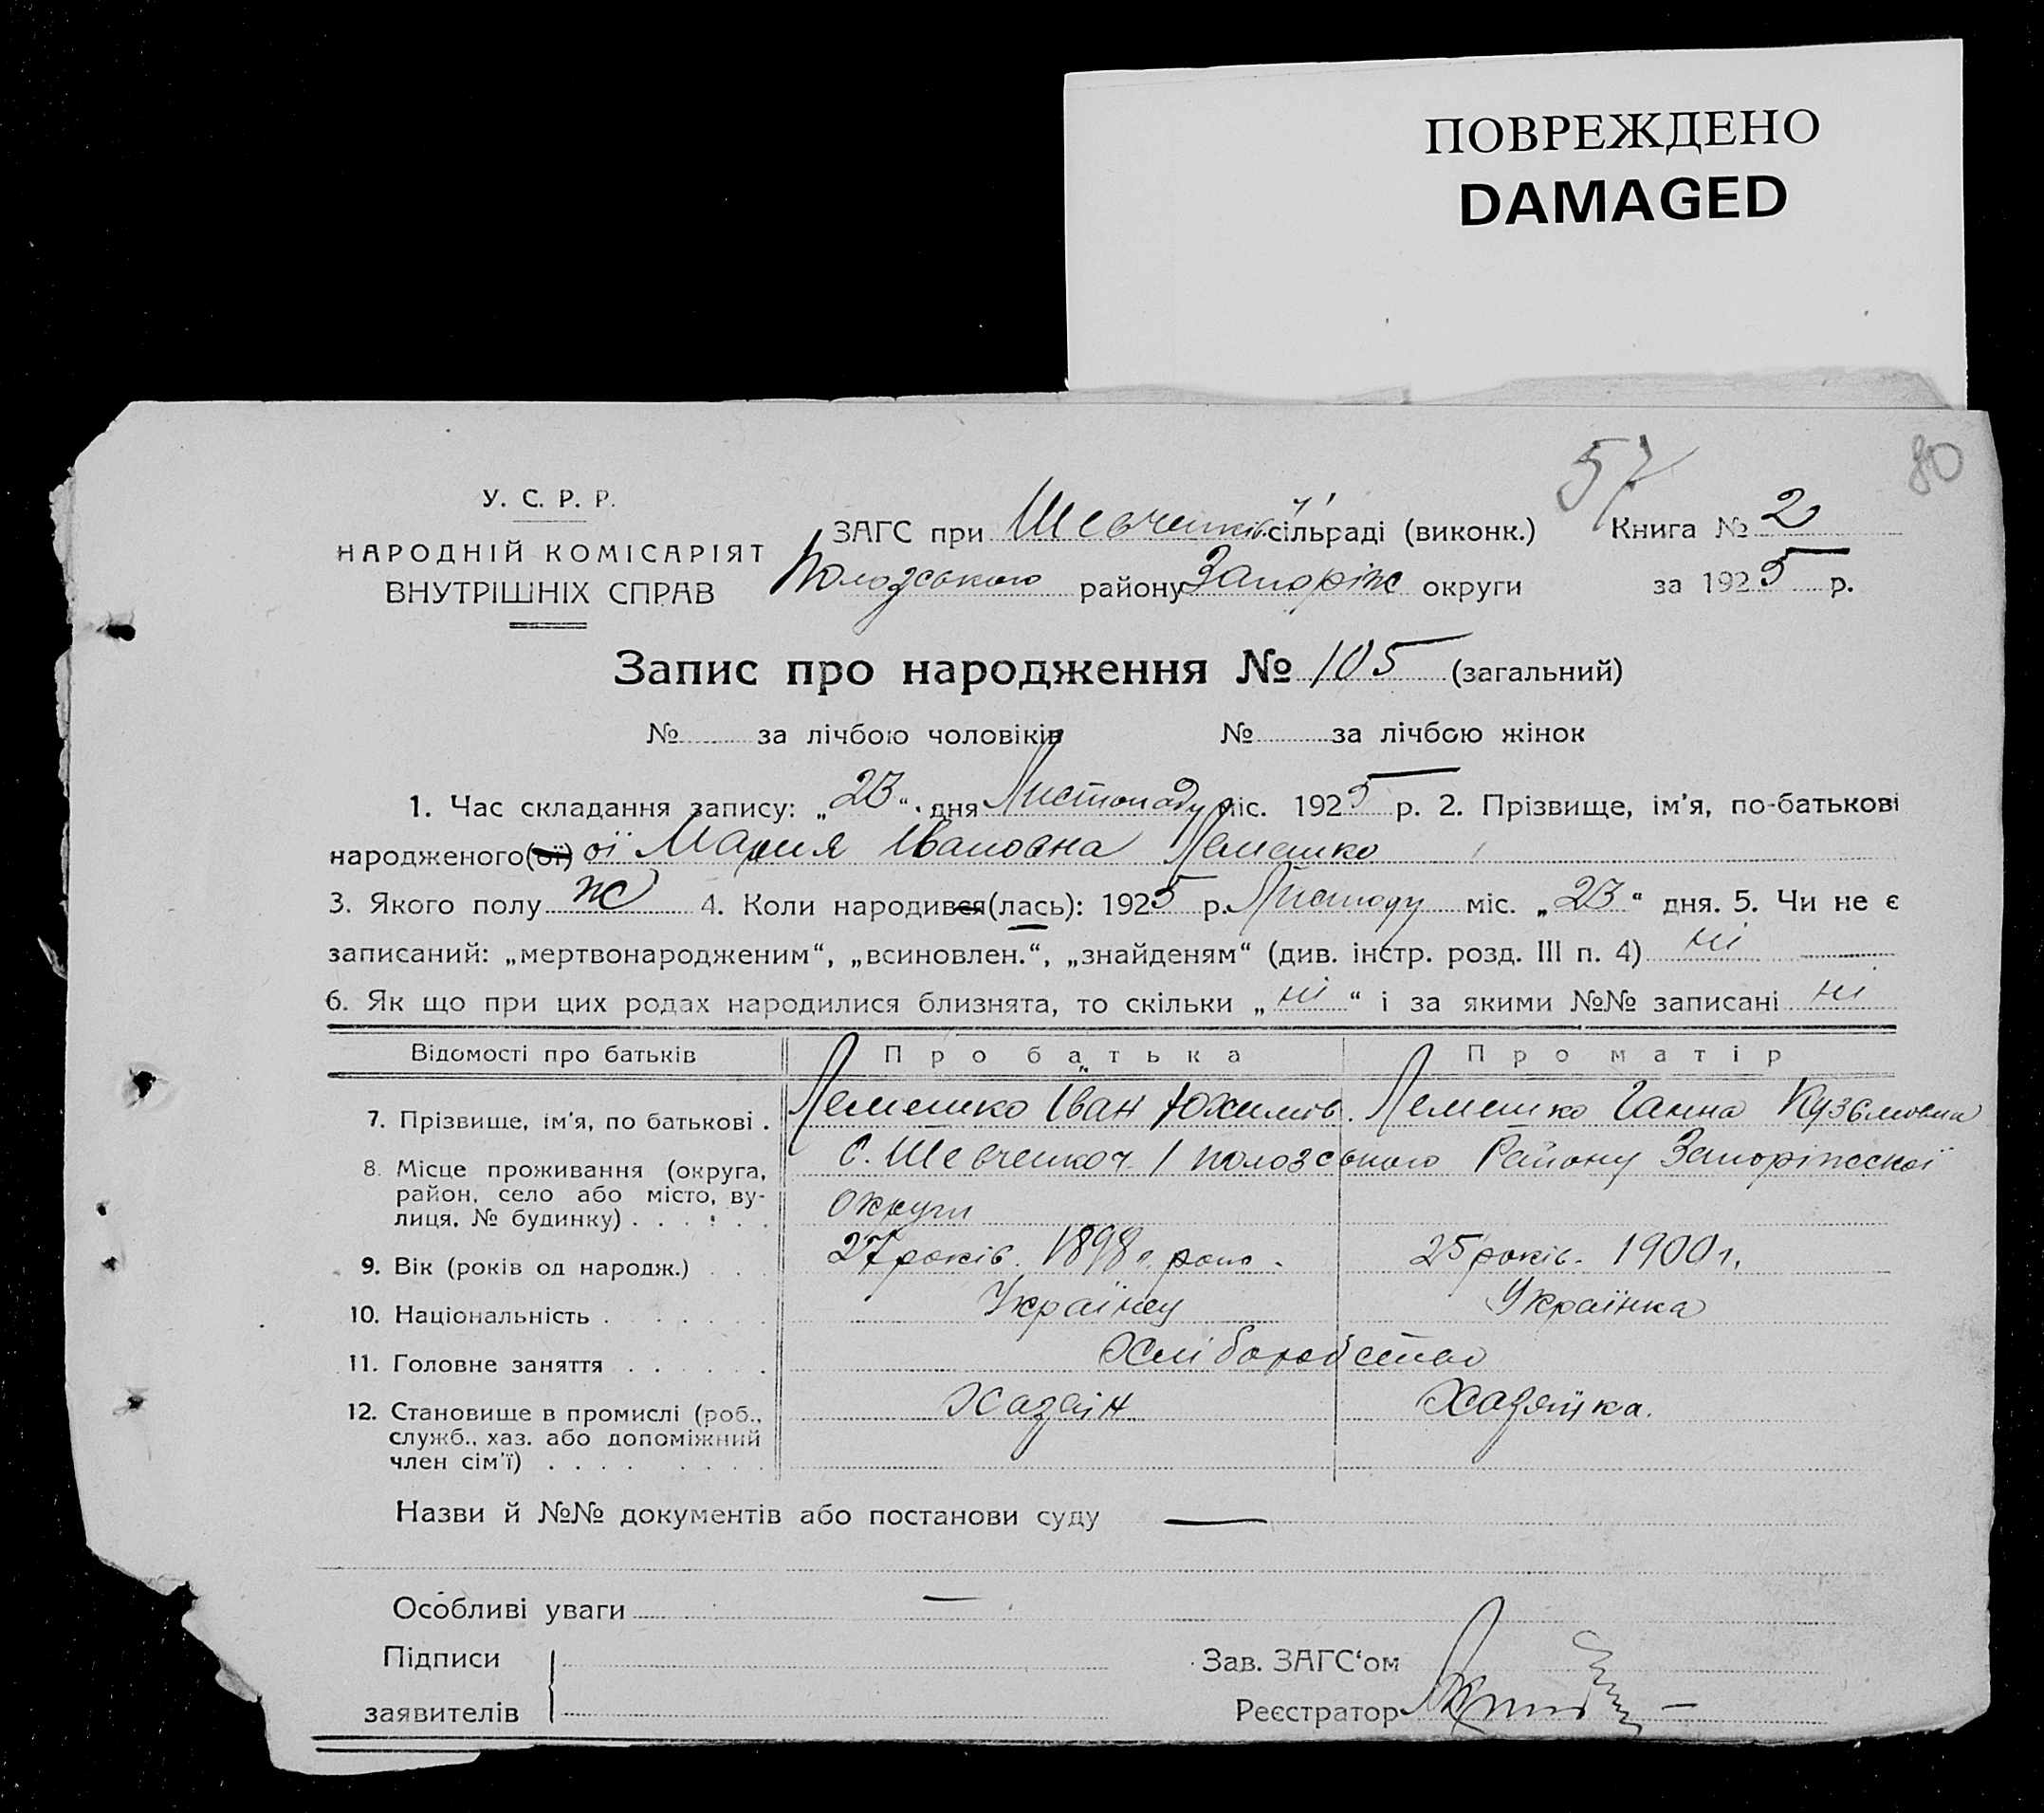 ПОВРЕЖДЕНО
DAMAGED
57
80
У. С. Р. Р.
НАРОДНІЙ КОМІСАРІЯТ
ВНУТРІШНІХ СПРАВ
ЗАГС при Шевченків. сільраді (виконк.)
Пологського району Запоріж округи
Книга № 2
за 1925 р.
Запис про народження № 105 (загальний)
№ за лічбою чоловіків № за лічбою жінок
1. Час складання запису: „23“ дня Листопаду міс. 1925 р. 2. Прізвище, ім'я, по-батькові
народженого(ої) ої Мария Івановна Лемешко
3. Якого полу ж 4. Коли народився(лась): 1925 р. Листопду міс. „23“ дня. 5. Чи не є
записаний: „мертвонародженим“, „всиновлен.“, „знайденям“ (див. інстр. розд. III п. 4) ні
6. Як що при цих родах народилися близнята, то скільки „ні“ і за якими №№ записані ні
Відомості про батьків Про батька Про матір
7. Прізвище, ім'я, по батькові . Лемешко Іван Юхимов. Лемешко Ганна Кузьмовна
8. Місце проживання (округа, район, село або місто, вулиця, № будинку) . . . . . . с. Шевченко пологського Району Запоріжської
округи
9. Вік (років од народж.) . . . 27 років. 1898 р. 25 років. 1900 г.
10. Національність . . . . . . . Українец Українка
11. Головне заняття . . . . . . Хліборобство
12. Становище в промислі (роб., служб., хаз. або допоміжний член сім'ї) . . . . . . . . Хазяін Хазяйка.
Назви й №№ документів або постанови суду —
Особливі уваги —
Підписи
заявителів
Зав. ЗАГС‘ом
Реєстратор